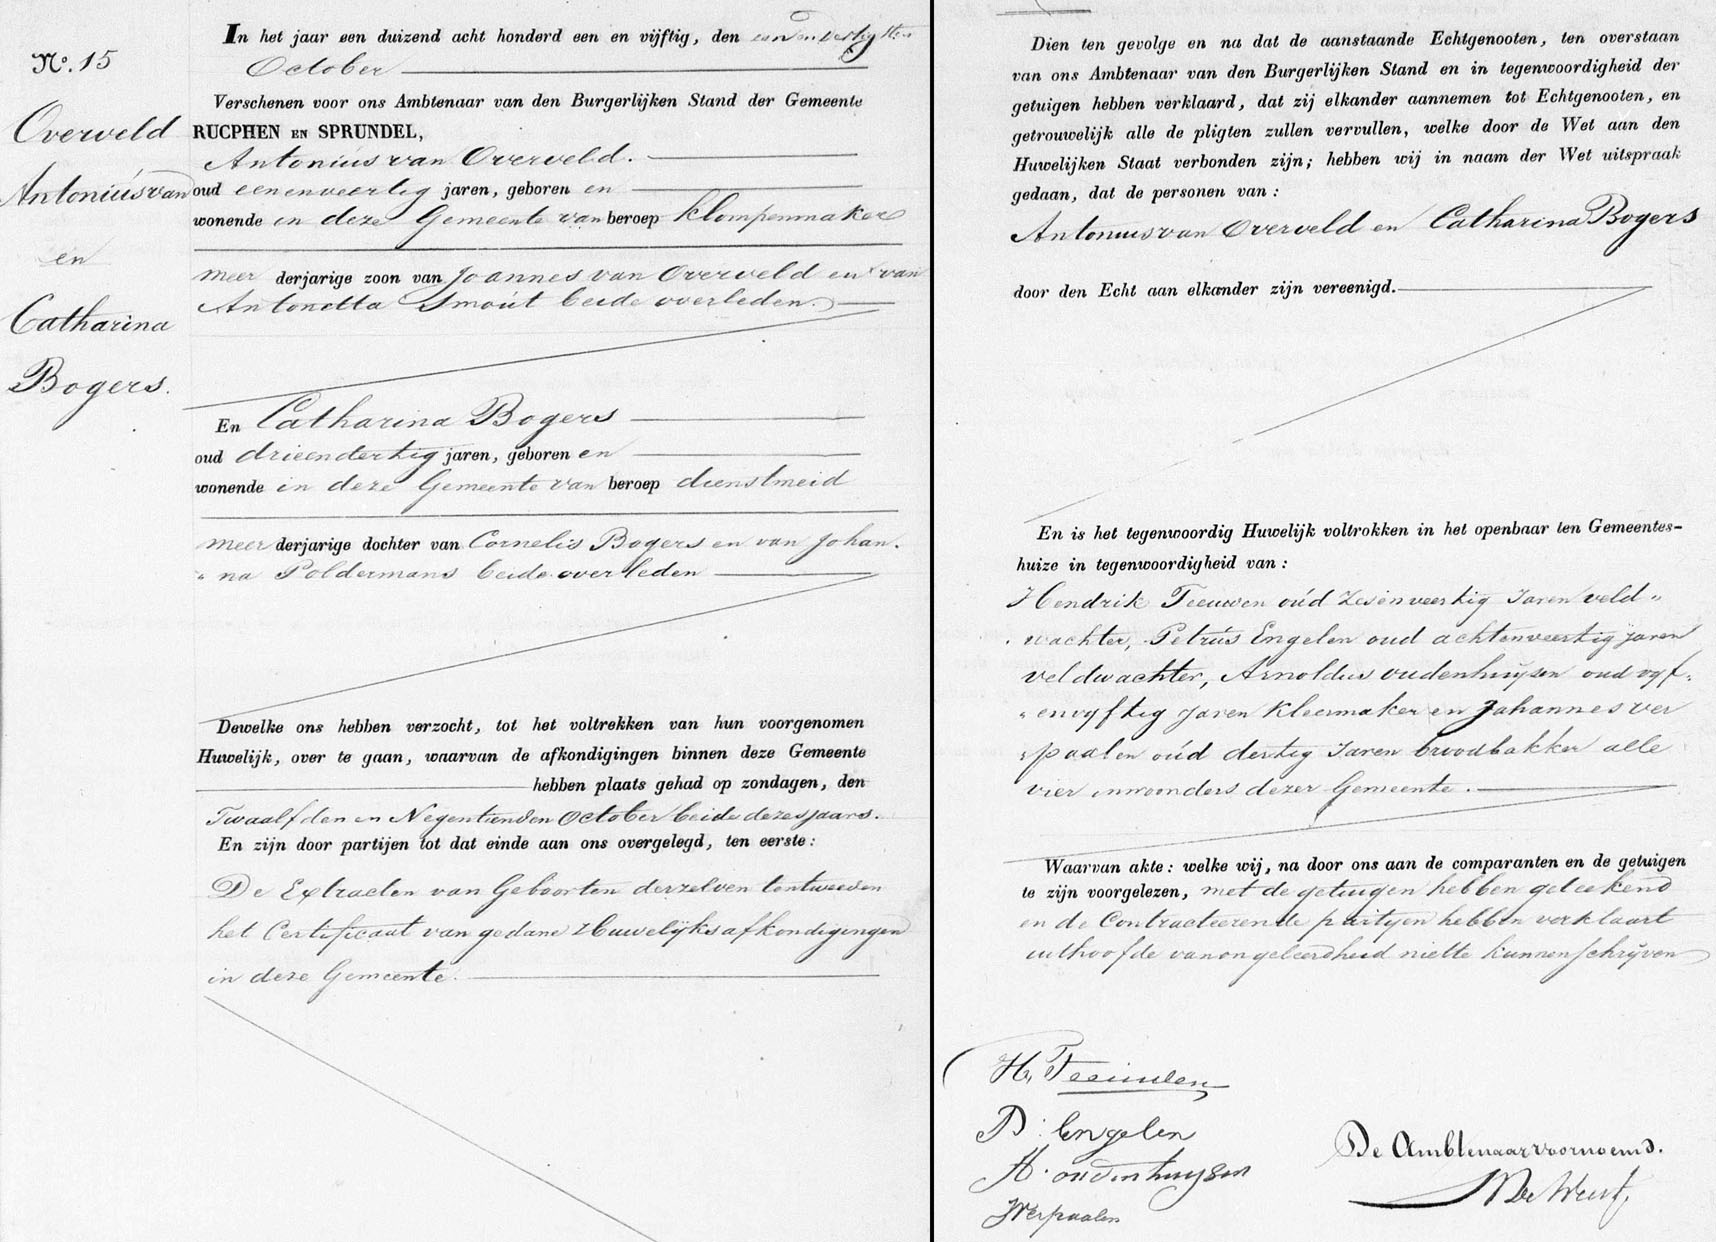 No. 15
Overveld
Antonius van
en
Catharina
Bogers.
In het jaar een duizend acht honderd een en vijftig, den een en dertigsten
October
Verschenen voor ons Ambtenaar van den Burgerlijken Stand der Gemeente
RUCPHEN EN SPRUNDEL,
Antonius van Overveld.
oud eenenveertig jaren, geboren en
wonende in deze Gemeente van beroep klompenmaker
meer derjarige zoon van Joannes van Overveld en van
Antonetta Smout beide overleden.
En Catharina Bogers
oud drieendertig jaren, geboren en
wonende in deze Gemeente van beroep dienstmeid
meer derjarige dochter van Cornelis Bogers en van Johan-
"na Poldermans beide overleden
Dewelke ons hebben verzocht, tot het voltrekken van hun voorgenomen
Huwelijk, over te gaan, waarvan de afkondigingen binnen deze Gemeente
hebben plaats gehad op zondagen, den
Twaalfden en Negentienden October beide dezes jaars.
En zijn door partijen tot dat einde aan ons overgelegd, ten eerste:
De Extracten van Geboorten derzelven tentweeden
het Certificaat van gedane Huwelijksafkondigingen
in deze Gemeente.
Dien ten gevolge en na dat de aanstaande Echtgenooten, ten overstaan
van ons Ambtenaar van den Burgerlijken Stand en in tegenwoordigheid der
getuigen hebben verklaard, dat zij elkander aannemen tot Echtgenooten, en
getrouwelijk alle de pligten zullen vervullen, welke door de Wet aan den
Huwelijken Staat verbonden zijn; hebben wij in naam der Wet uitspraak
gedaan, dat de personen van:
Antonius van Overveld en Catharina Bogers
door den Echt aan elkander zijn vereenigd.
En is het tegenwoordig Huwelijk voltrokken in het openbaar ten Gemeentes-
huize in tegenwoordigheid van:
Hendrik Teeuwen oud zesenveertig Jaren veld"
wachter, Petrus Engelen oud achtenveertig jaren
veldwachter, Arnoldus oudenhuijsen oud vyf"
"envyftig jaren Kleermaker en Johannes ver
"paalen oud dertig Jaren broodbakker alle
vier inwoonders dezer Gemeente.
Waarvan akte: welke wij, na door ons aan de comparanten en de getuigen
te zijn voorgelezen, met de getuigen hebben geteekend
en de Contracteerende partyen hebben verklaart
uithoofde van ongeleerdheid niet te kunnen schryven
H. Teeuwen
P. Engelen
A. oudenhuysen
J Verpaalen
De Ambtenaar voornoemd.